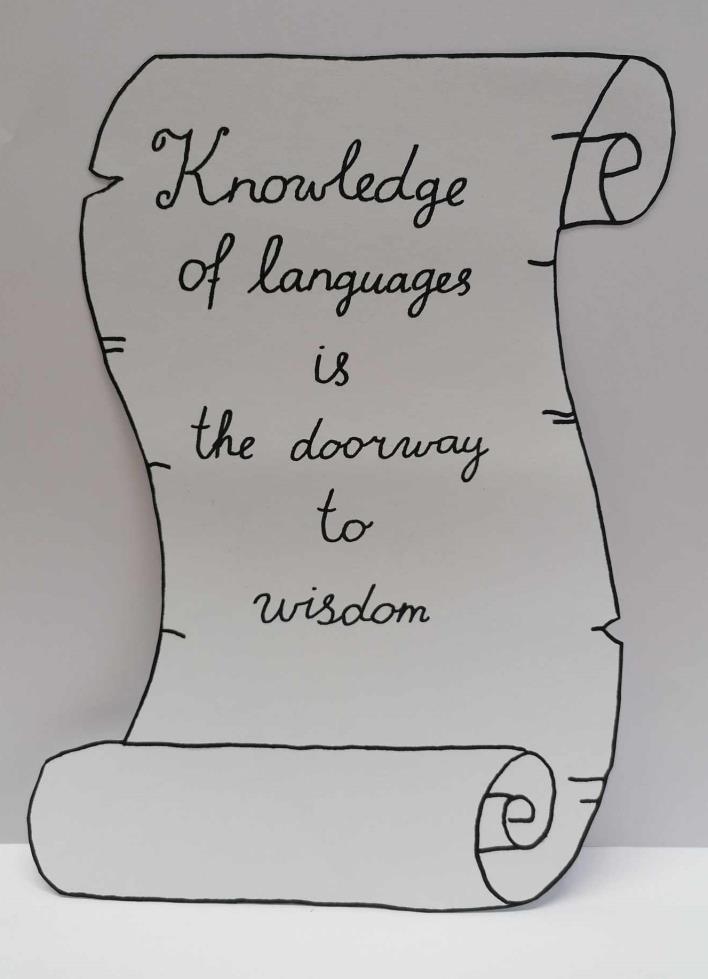 Knowledge
of languages
is
the doorway
to
wisdom